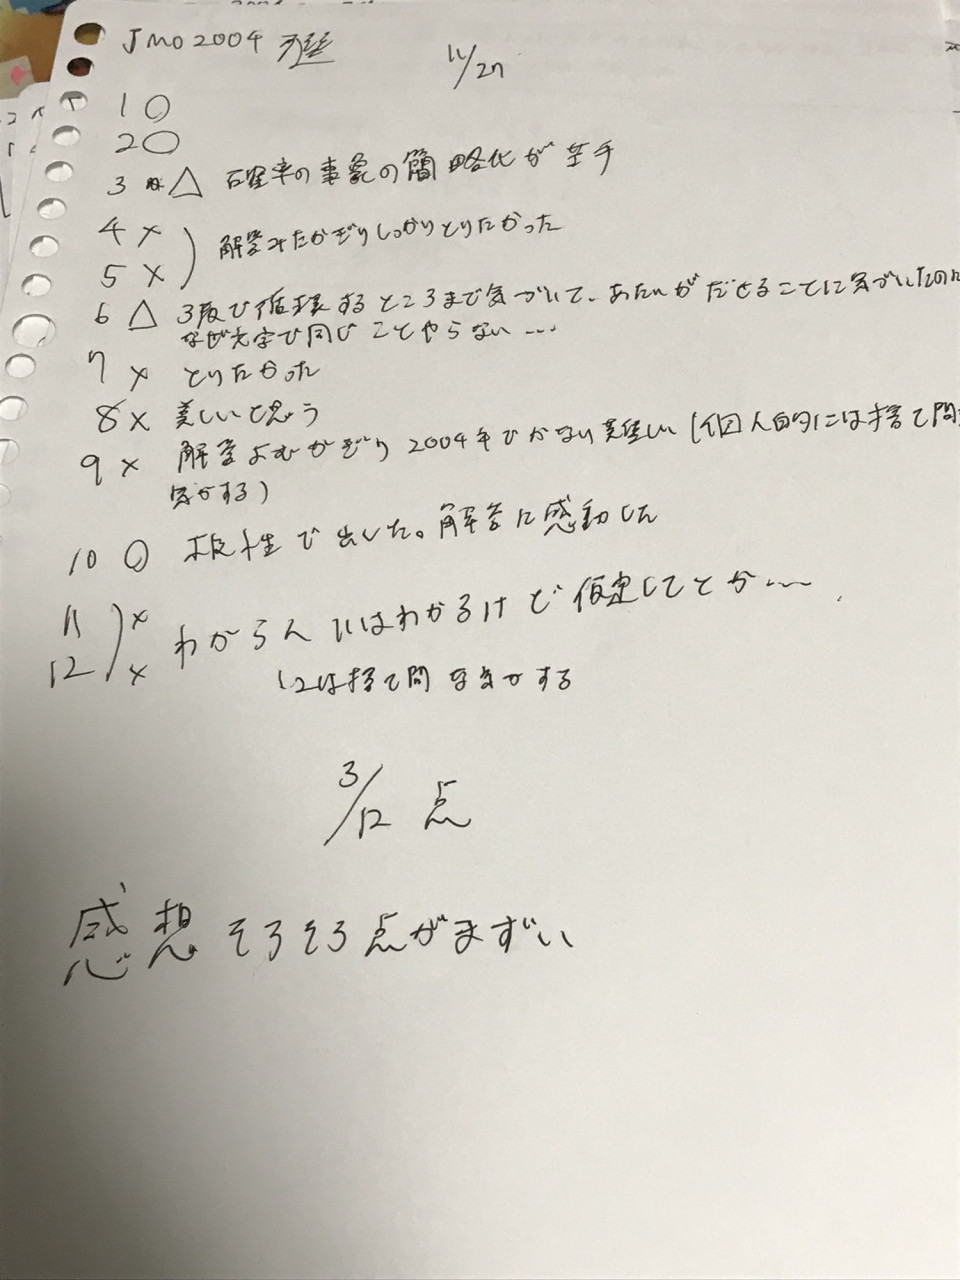 JMO2004 11/27
1 ○
2 ○
3 △ 確率の事象の簡略化が苦手
4 ×
5 × 解答みたかぎりしっかりとりたかった
6 △ 3項で循環するところまで気づいて、あたいがだせることに気づいたのに
なぜ文字で同じことやらない…
7 × とりたかった
8 × 美しいと思う
9 × 解答よむかぎり2004年でかなり難しい(個人的には捨て問
気がする)
10 ○ 根性で出した。解答に感動した
11 ×
12 × わからん 11はわかるけど仮定してとか…
12は捨て問な気がする
3/12 点
感想 そろそろ点がまずい